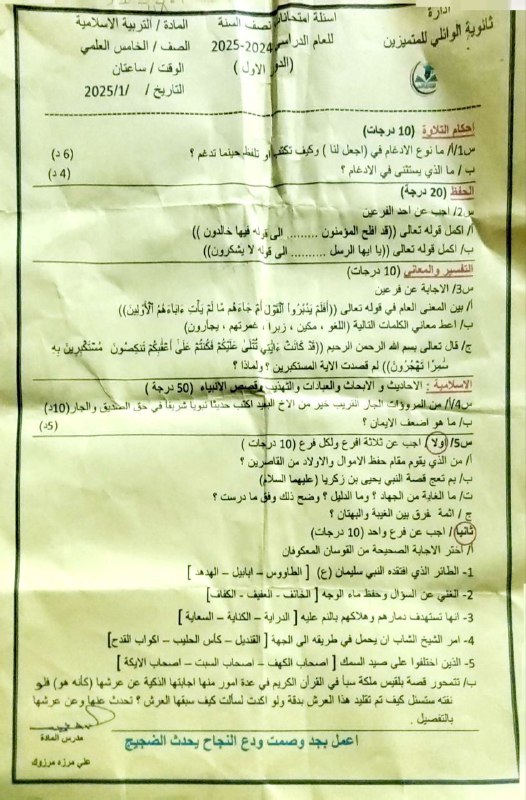 ادارة
ثانوية الوائلي للمتميزين
اسئلة امتحانات نصف السنة
للعام الدراسي 2024-2025
(الدور الاول)
المادة / التربية الاسلامية
الصف / الخامس العلمي
الوقت / ساعتان
التاريخ / /2025/1
احكام التلاوة (10 درجات)
س1/أ/ ما نوع الادغام في (اجعل لنا) وكيف تكتب او تلفظ حينما تدغم ؟ (6 د)
ب / ما الذي يستثنى في الادغام ؟ (4 د)
الحفظ (20 درجة)
س2/ اجب عن احد الفرعين
أ/ اكمل قوله تعالى ((قد افلح المؤمنون ........ الى قوله فيها خالدون ))
ب/ اكمل قوله تعالى ((يا ايها الرسل .......... الى قوله لا يشكرون))
التفسير والمعاني (10 درجات)
س3/ الاجابة عن فرعين
أ/ بين المعنى العام في قوله تعالى ((أَفَلَمْ يَدَّبَّرُوا الْقَوْلَ أَمْ جَاءَهُم مَّا لَمْ يَأْتِ ءَابَاءَهُمُ الْأَوَّلِينَ))
ب/ اعط معاني الكلمات التالية (اللغو ، مكين ، زبرا ، غمرتهم ، يجأرون)
ج/ قال تعالى بسم الله الرحمن الرحيم ((قَدْ كَانَتْ ءَايَتِي تُتْلَى عَلَيْكُمْ فَكُنتُمْ عَلَى أَعْقَبِكُمْ تَنكِصُونَ مُسْتَكْبِرِينَ بِهِ
سَمِرًا تَهْجُرُونَ)) لم قصدت الاية المستكبرين ؟ ولماذا ؟
الاسلامية : الاحاديث و الابحاث والعبادات والتهذيب وقصص الانبياء (50 درجة )
س4/أ/ من المروؤات الجار القريب خير من الاخ البعيد اكتب حديثا نبويا شريفا في حق الصديق والجار(10د)
ب/ ما هو اضعف الايمان ؟ (5د)
س5/ اولا/ اجب عن ثلاثة افرع ولكل فرع (10 درجات )
أ/ من الذي يقوم مقام حفظ الاموال والاولاد من القاصرين ؟
ب/ بم تعج قصة النبي يحيى بن زكريا (عليهما السلام)
ت/ ما الغاية من الجهاد ؟ وما الدليل ؟ وضح ذلك وفق ما درست ؟
ج / اثمة فرق بين الغيبة والبهتان ؟
ثانيا / اجب عن فرع واحد (10 درجات)
أ/ اختر الاجابة الصحيحة من القوسان المعكوفان
1- الطائر الذي افتقده النبي سليمان (ع) [ الطاووس – ابابيل – الهدهد ]
2- الغني عن السؤال وحفظ ماء الوجه [ الخائف - العفيف - الكفاف]
3- انها تستهدف دمارهم وهلاكهم بالنم عليه [ الدراية – الكناية – السعاية ]
4- امر الشيخ الشاب ان يحمل في طريقه الى الجهة [ القنديل – كأس الحليب – اكواب القدح]
5- الذين اختلفوا على صيد السمك [ اصحاب الكهف – اصحاب السبت – اصحاب الايكة ]
ب/ تتمحور قصة بلقيس ملكة سبأ في القرآن الكريم في عدة امور منها اجابتها الذكية عن عرشها (كأنه هو) فلو
نفته ستسئل كيف تم تقليد هذا العرش بدقة ولو اكدت لسألت كيف سبقها العرش ؟ تحدث عنها وعن عرشها
بالتفصيل .
اعمل بجد وصمت ودع النجاح يحدث الضجيج
مدرس المادة
علي مرزه مرزوك